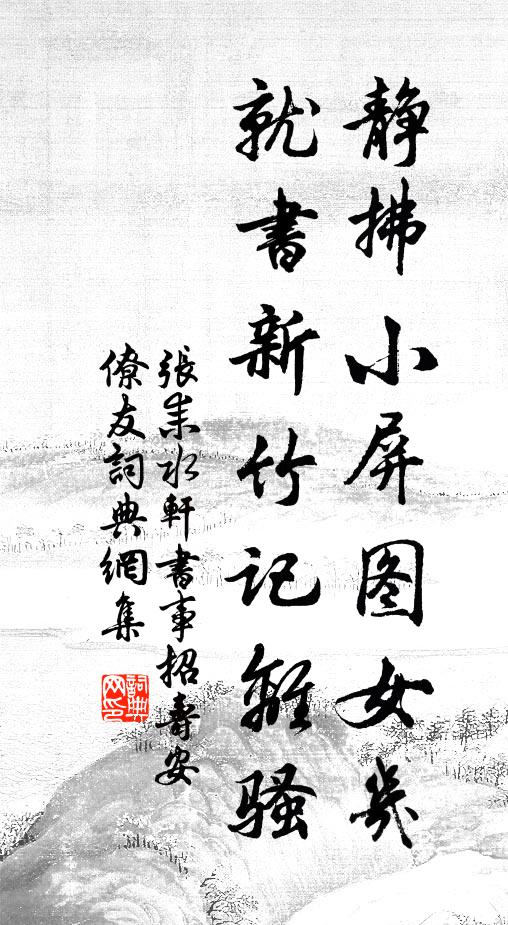 静拂小屏图女幾
就書新竹记離骚
張耒水軒書事招壽安
僚友詞典網集
詞典
网印